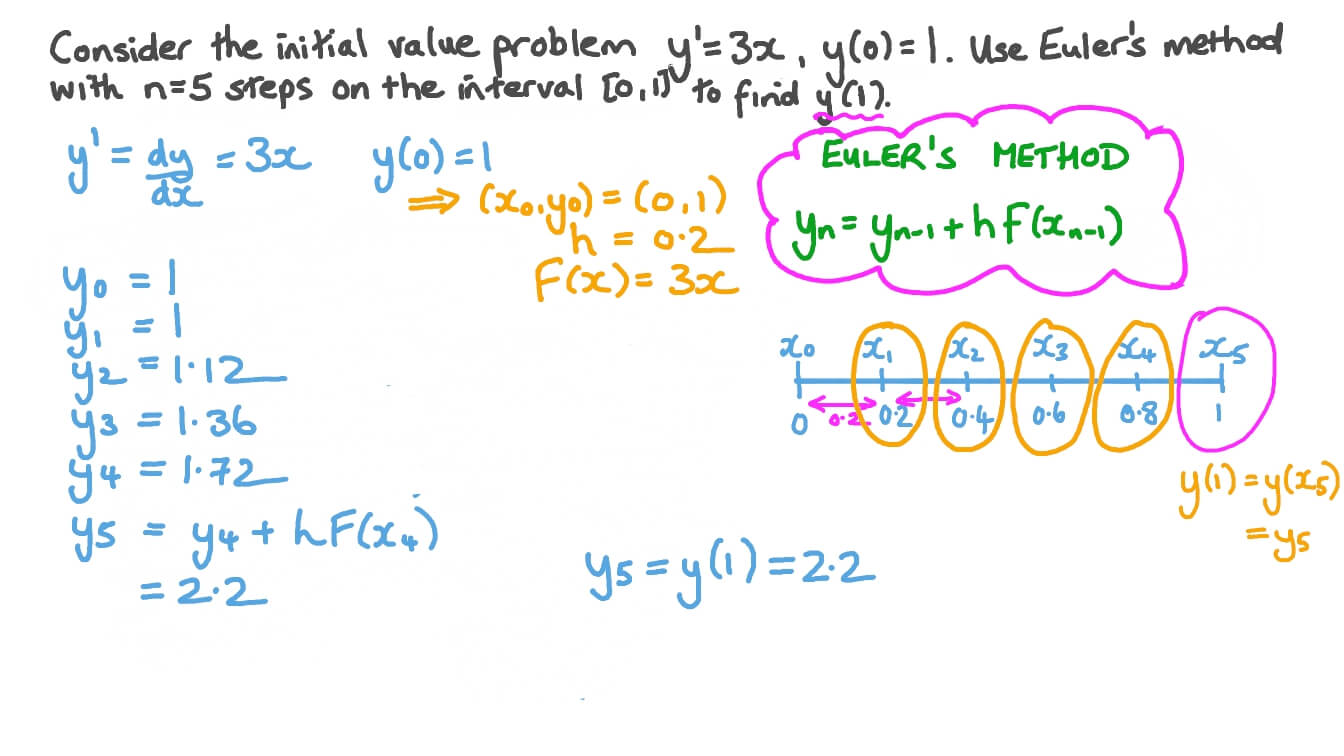 Consider the initial value problem y'=3x, y(0)=1. Use Euler's method
with n=5 steps on the interval [0,1] to find y(1).
y' = dy/dx = 3x y(0)=1
⇒ (x₀,y₀) = (0,1)
h = 0.2
F(x)= 3x
EULER'S METHOD
yₙ = yₙ₋₁ + h F(xₙ₋₁)
y₀ = 1
y₁ = 1
y₂ = 1.12
y₃ = 1.36
y₄ = 1.72
y₅ = y₄ + hF(x₄)
= 2.2
y₅ = y(1) = 2.2
x₀ x₁ x₂ x₃ x₄ x₅
0.2
0 0.2 0.4 0.6 0.8 1
y(1) = y(x₅)
= y₅